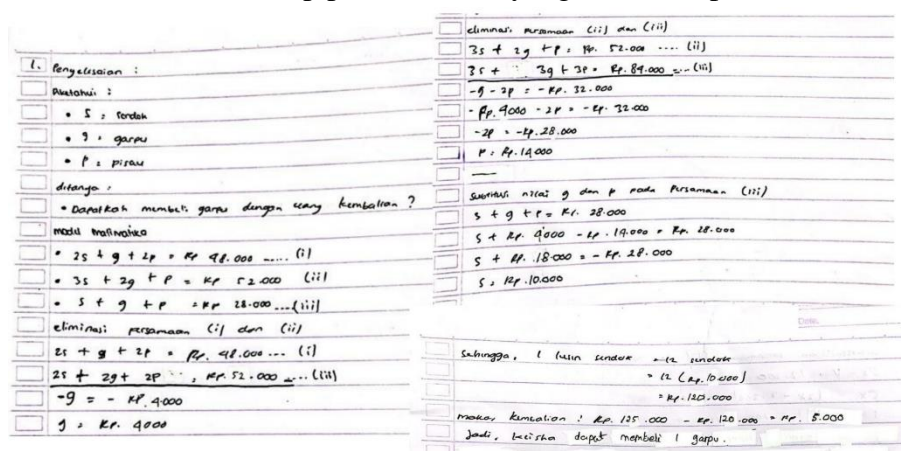 1. Penyelesaian :
Diketahui :
• S : sendok
• g : garpu
• P : pisau
ditanya :
• Dapatkah membeli garpu dengan uang kembalian ?
model matematika
• 2s + g + 2p = Rp 48.000 ..... (i)
• 3s + 2g + p = Rp 52.000 (ii)
• s + g + p = Rp 28.000 ....(iii)
eliminasi persamaan (i) dan (ii)
2s + g + 2p = Rp. 48.000 ... (i)
2s + 2g + 2p = Rp. 52.000 .... (iii)
-g = - Rp. 4.000
g = Rp. 4000
eliminasi persamaan (ii) dan (iii)
3s + 2g + p = Rp. 52.000 .... (ii)
3s + 3g + 3p = Rp. 84.000 .... (iii)
-g - 2p = - Rp. 32.000
- Rp. 4000 - 2p = - Rp. 32.000
-2p = -Rp. 28.000
P = Rp. 14.000
substitusi nilai g dan p pada Persamaan (iii)
s + g + p = Rp. 28.000
s + Rp. 4000 - Rp. 14.000 = Rp. 28.000
s + Rp. 18.000 = - Rp. 28.000
s = Rp. 10.000
Sehingga, 1 lusin sendok = 12 sendok
= 12 (Rp. 10.000)
= Rp. 120.000
maka, kembalian : Rp. 125.000 - Rp. 120.000 = Rp. 5.000
Jadi, dapat membeli 1 garpu.